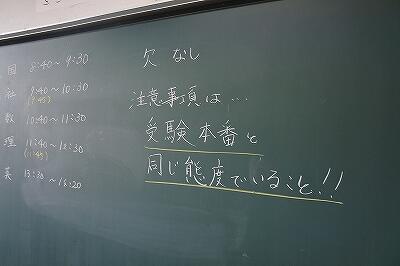 国 8:40〜9:30
社 9:40〜10:30
(9:45)
数 10:40〜11:30
理 11:40〜12:30
(11:45)
英 13:30〜14:20
欠 なし
注意事項は…
受験本番と
同じ態度でいること!!